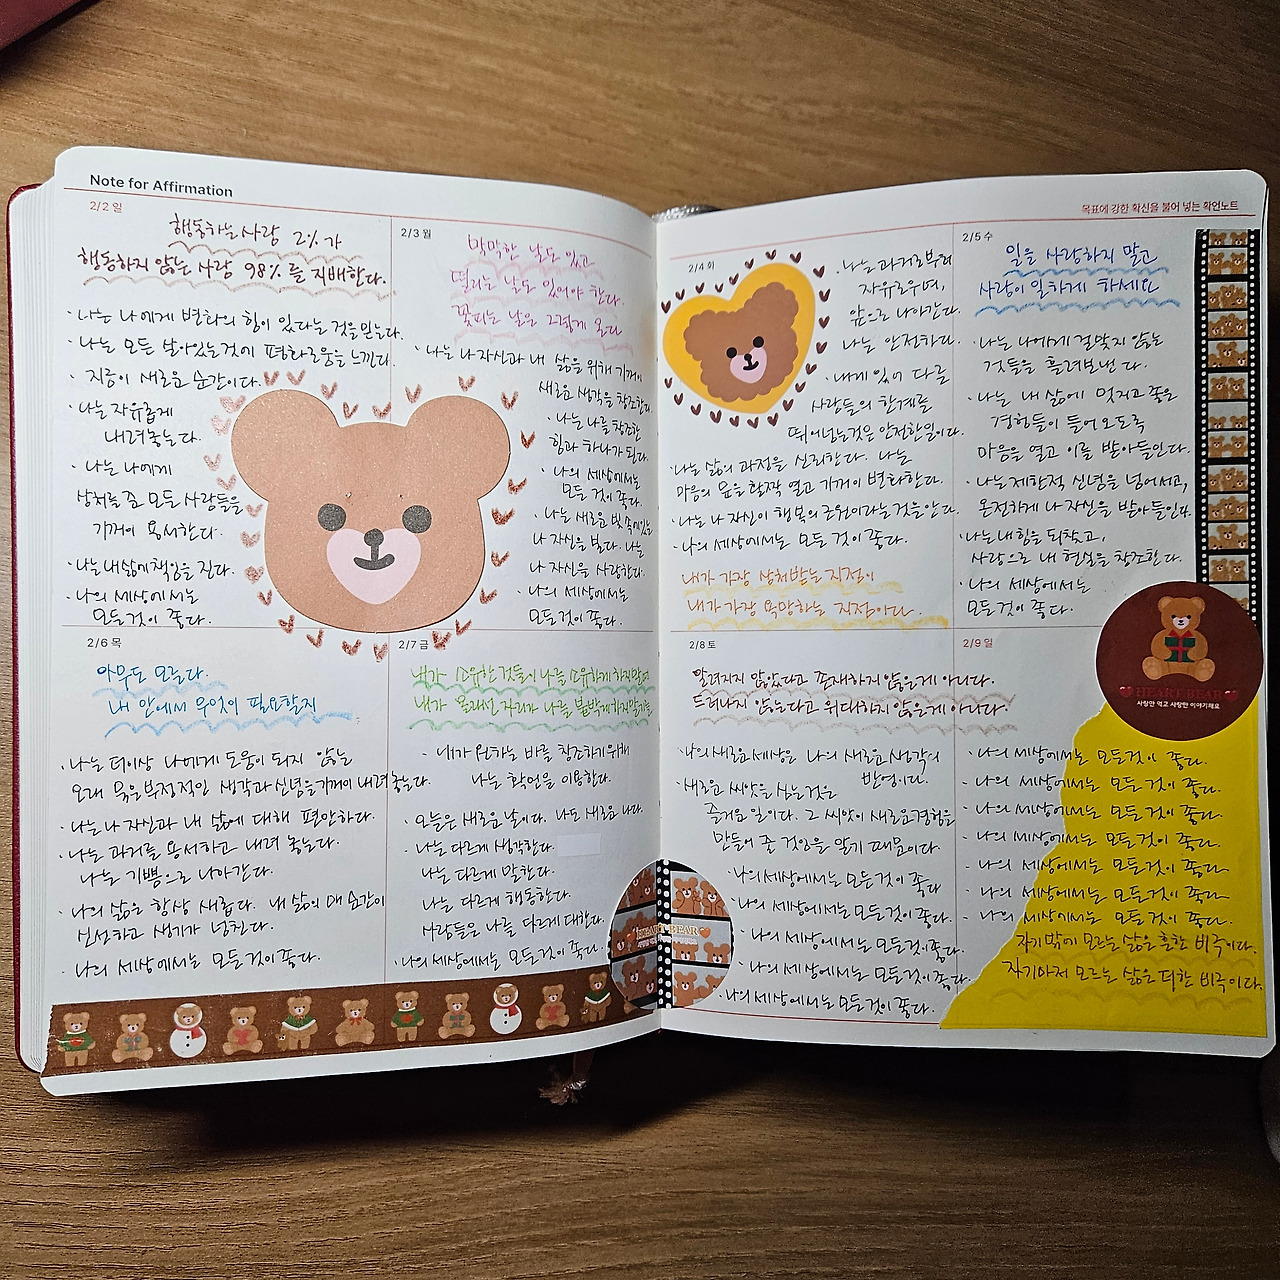 Note for Affirmation
목표에 강한 확신을 불어 넣는 확언노트
2/2 일
행동하는 사람 2%가
행동하지 않는 사람 98%를 지배한다.
· 나는 나에게 변화의 힘이 있다는 것을 믿는다.
· 나는 모든 살아있는 것에 평화로움을 느낀다.
· 지금이 새로운 순간이다.
· 나는 자유롭게
내려놓는다.
· 나는 나에게
상처를 준 모든 사람들을
기꺼이 용서한다.
· 나는 내 삶에 책임을 진다.
· 나의 세상에서는
모든 것이 좋다.
2/3 월
막막한 날도 있고
떨리는 날도 있어야 한다.
꽃피는 날은 그렇게 온다
· 나는 나 자신과 내 삶을 위해 기꺼이
새로운 생각을 창조한다.
· 나는 나를 창조한
힘과 하나가 된다.
· 나의 세상에서는
모든 것이 좋다.
· 나는 새로운 빛 속에 있는
나 자신을 본다. 나는
나 자신을 사랑한다.
· 나의 세상에서는
모든 것이 좋다.
2/4 화
· 나는 과거로부터
자유로우며,
앞으로 나아간다.
나는 안전하다.
· 내게 있어 다른
사람들의 한계를
뛰어넘는 것은 안전한 일이다.
· 나는 삶의 과정을 신뢰한다. 나는
마음의 문을 활짝 열고 기꺼이 변화한다.
· 나는 나 자신이 행복의 근원이라는 것을 안다.
· 나의 세상에서는 모든 것이 좋다.
내가 가장 상처받는 지점이
내가 가장 욕망하는 지점이다.
2/5 수
일을 사랑하지 말고
사랑이 일하게 하세요
· 나는 나에게 걸맞지 않는
것들을 흘려보낸다.
· 나는 내 삶에 멋지고 좋은
경험들이 들어오도록
마음을 열고 이를 받아들인다.
· 나는 제한적 신념을 넘어서고,
온전하게 나 자신을 받아들인다.
· 나는 내 힘을 되찾고,
사랑으로 내 현실을 창조한다.
· 나의 세상에서는
모든 것이 좋다.
HEART BEAR
사랑만 먹고 사랑만 이야기해요
2/6 목
아무도 모른다.
내 안에서 무엇이 필요할지
· 나는 더이상 나에게 도움이 되지 않는
오래 묵은 부정적인 생각과 신념을 기꺼이 내려 놓는다.
· 나는 나 자신과 내 삶에 대해 편안하다.
· 나는 과거를 용서하고 내려 놓는다.
나는 기쁨으로 나아간다.
· 나의 삶은 항상 새롭다. 내 삶의 매 순간이
신선하고 생기가 넘친다.
· 나의 세상에서는 모든 것이 좋다.
2/7 금
내가 소유한 것들이 나를 소유하게 하지말며
내가 올라설 자리가 나를 붙박게 하지말기를
· 내가 원하는 바를 창조하기 위해
나는 확언을 이용한다.
· 오늘은 새로운 날이다. 나도 새로운 나다.
· 나는 다르게 생각한다.
나는 다르게 말한다.
나는 다르게 행동한다.
사람들은 나를 다르게 대한다.
· 나의 세상에서는 모든 것이 좋다.
HEART BEAR
2/8 토
알려지지 않았다고 존재하지 않은게 아니다.
드러나지 않는다고 위대하지 않은게 아니다.
· 나의 새로운 세상은 나의 새로운 생각의
반영이다.
· 새로운 씨앗을 심는 것은
즐거운 일이다. 그 씨앗이 새로운 경험을
만들어 줄 것임을 알기 때문이다.
· 나의 세상에서는 모든 것이 좋다
· 나의 세상에서는 모든 것이 좋다.
· 나의 세상에서는 모든 것이 좋다.
· 나의 세상에서는 모든 것이 좋다.
· 나의 세상에서는 모든 것이 좋다.
2/9 일
· 나의 세상에서는 모든 것이 좋다.
· 나의 세상에서는 모든 것이 좋다.
· 나의 세상에서는 모든 것이 좋다.
· 나의 세상에서는 모든 것이 좋다.
· 나의 세상에서는 모든 것이 좋다.
· 나의 세상에서는 모든 것이 좋다.
· 나의 세상에서는 모든 것이 좋다.
자기밖에 모르는 삶은 흔한 비극이다.
자기마저 모르는 삶은 더한 비극이다.